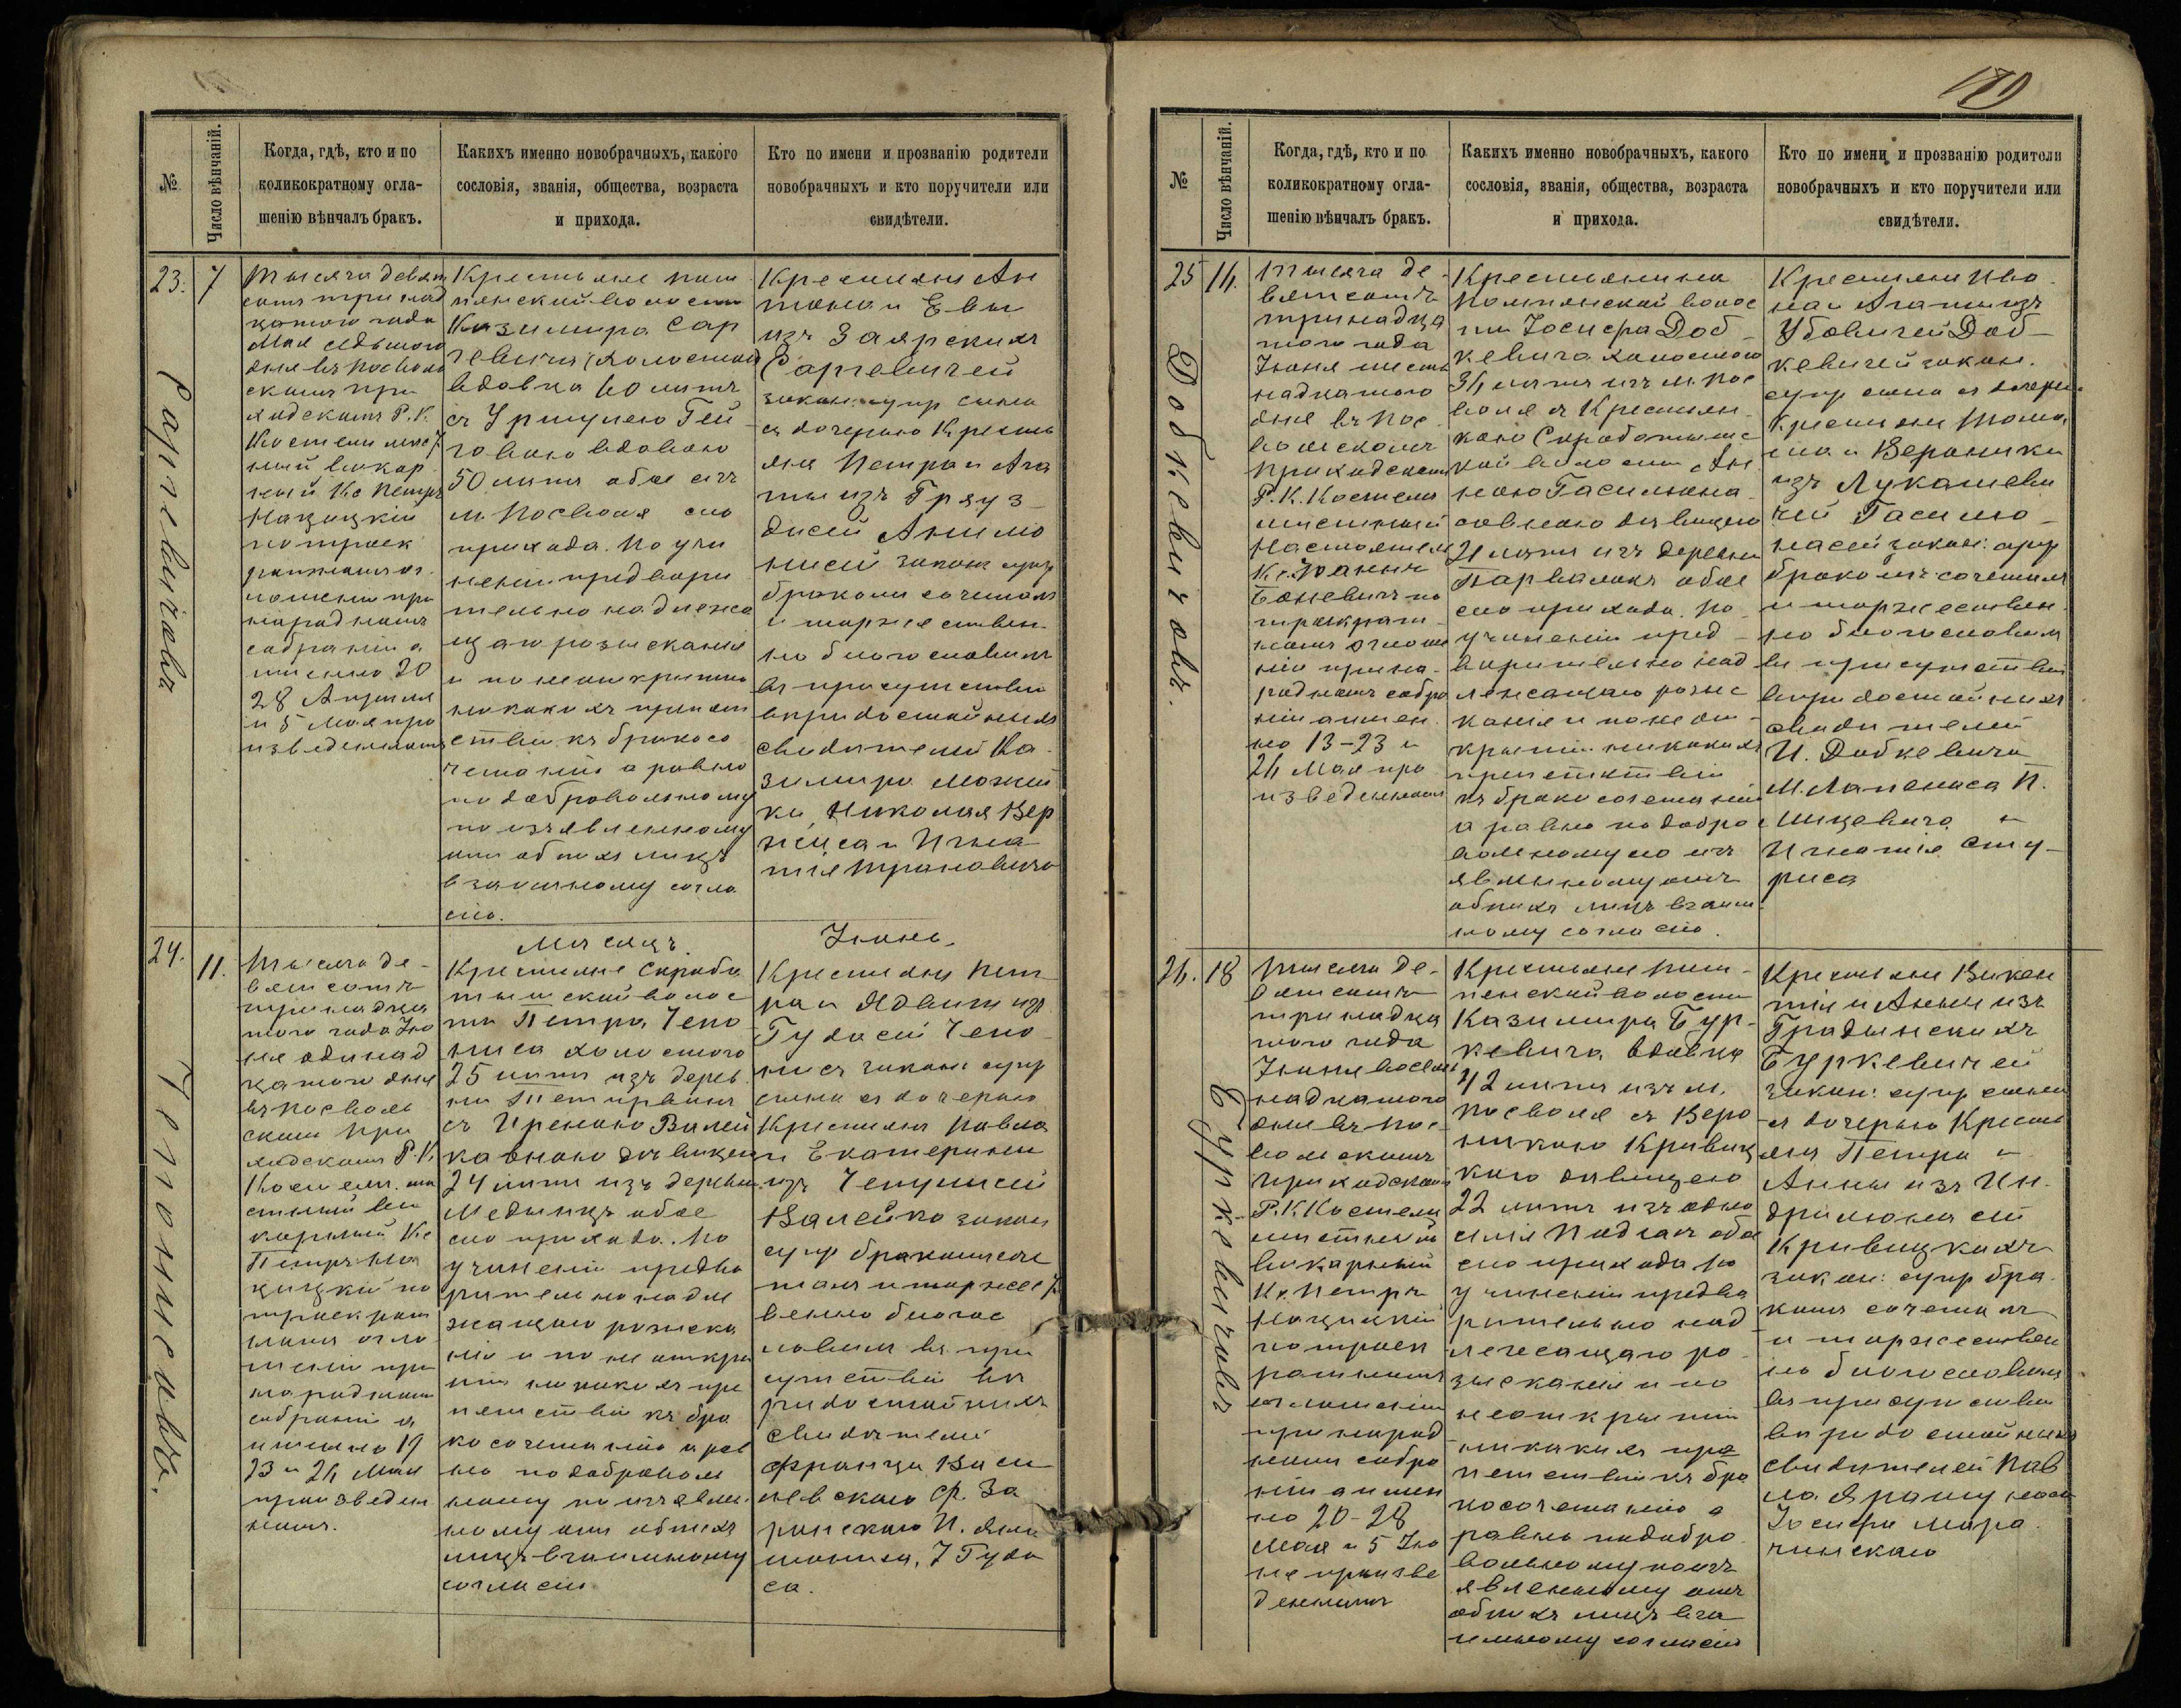 179
№
Число вѣнчаній.
Когда, гдѣ, кто и по
коликократному огла-
шенію вѣнчалъ бракъ.
Какихъ именно новобрачныхъ, какого
сословія, званія, общества, возраста
и прихода.
Кто по имени и прозванію родители
новобрачныхъ и кто поручители или
свидѣтели.
23.
7
Сарпевичова
Тысяча девят
сотъ тринад
цатого года
Мая седьмого
дня въ Посволь
скомъ при
ходскомъ Р. К.
Костелѣ мѣст
ный викар
ный Кс Петръ
Нацицкій
по троек
ратномъ ог
лашеніи при
народномъ
собраніи а
именно 20
28 Апрѣля
и 5 Мая про
изведенномъ
Крестьяне
волости
Казимира Сар
вдовца 60 лѣтъ
съ Уршулею Гей
вдовою
50 лѣтъ обое изъ
м. Посволя сего
прихода. По учи
неніи предвари
тельно надлежа
щаго розысканія
и по неоткрытіи
никакихъ препят
ствій къ бракосо
четанію а равно
по добровольному
по изъявленному
отъ обоихъ лицъ
взаимному согла
сію.
Крестьянъ Ан
тона и Евы
изъ Заярскихъ
закон. супр сына
съ дочерью Кресть
янъ Петра и Ага
ты изъ Грауз
закон супр
бракомъ сочеталъ
и торжествен
но благословилъ
въ присутствіи
вѣридостойныхъ
свидѣтелей Ка
зимира
Николая Вер
жбиса и Игна
тія Трановича
24.
11.
Мѣсяцъ
Іюнь.
Тысяча де-
вятсотъ
тринадца
того года Ію
ня одинад
цатого дня
въ Посволь
скомъ При
ходскомъ Р. К.
Костелѣ мѣ
стный ви
карный Кс
Петръ На
цицкій по
троекрат
номъ огла
шеніи при
народномъ
собраніи а
именно 19
23 и 26 Мая
произведен
номъ.
Крестьяне Скроба
тышской волос
ти Петра Чепо
ниса холостого
25 лѣтъ изъ дерев
ни
съ Иреною Валей
ковною дѣвицею
24 лѣтъ изъ деревни
обое
сего прихода. По
учиненіи предва
рительно надле
жащаго розыска
нія и по неоткры
тіи никакихъ пре
пятствій къ бра
косочетанію а рав
но по доброволь
ному по изъявлен
ному отъ обоихъ
лицъ взаимному
согласію
Крестьянъ Пет
ра и Ядвиги изъ
Гудасей Чепо
нисъ закон супр
сына съ дочерью
Крестьянъ Павла
и Екатерины
изъ
Валейко закон
супр бракомъ соче
талъ и торжест
венно благос
ловилъ въ при
сутствіи вѣ
ридостойныхъ
свидѣтелей
Франца Васи
левскаго Ф. За
И.
І Гуда
са.
№
Число вѣнчаній.
Когда, гдѣ, кто и по
коликократному огла-
шенію вѣнчалъ бракъ.
Какихъ именно новобрачныхъ, какого
сословія, званія, общества, возраста
и прихода.
Кто по имени и прозванію родители
новобрачныхъ и кто поручители или
свидѣтели.
25
16.
Добкевичовъ.
Тысяча де-
вятсотъ
тринадца
того года
Іюня шест
надцатого
дня въ Пос
вольскомъ
приходскомъ
Р. К. Костелѣ
мѣстный
Настоятель
Кс. Іоаннъ
по
троекрат
номъ оглаше
ніи при на
родномъ собра
ніи а имен
но 13-23 и
26 Мая про
изведенномъ
Крестьянина
Помпянской волос
ти Іосифа Доб
кевича холостого
36 лѣтъ изъ м. Пос
воля съ Крестьян
кою Скробатышс
кой волости Ан
ною Гасилюна
совною дѣвицею
21 лѣтъ изъ деревни
обое
сего прихода. По
учиненіи пред
варительно над
лежащаго розыс
канія и по неот
крытіи никакихъ
препятствій
къ бракосочетанію
а равно по добро
вольному по изъ
явленному отъ
обоихъ лицъ взаим
ному согласію.
Крестьянъ Ива
на и Агаты изъ
Убовичей Доб
кевичей закон.
супр сына съ дочерью
Крестьянъ Тома
ша и Вероники
изъ Лукашеви
чей Гасилю
насей закон: супр
бракомъ сочеталъ
и торжествен
но благословилъ
въ присутствіи
вѣридостойныхъ
свидѣтелей
И. Добкевича
М. Лапенаса П.
Мицевича и
Игнатія Сту-
риса
26.
18
Буркевичовъ
Тысяча де-
вятсотъ
тринадца
того года
Іюня восем
надцатого
дня въ Пос
вольскомъ
приходскомъ
Р. К. Костелѣ
мѣстный
викарный
Кс. Петръ
Нацицкій
по троек
ратномъ
оглашеніи
при народ
номъ собра
ніи а имен
но 20-28
Мая и 5 Ію
ня произве
денномъ
Крестьяне
волости
Казимира Бур
кевича вдовца
42 лѣтъ изъ м.
Посволя съ Веро
никою Кривиц
кою дѣвицею
22 лѣтъ изъ
обое
сего прихода По
учиненіи предва
рительно над
лежащаго ро
зысканія и по
неоткрытіи
никакихъ пре
пятствій къ бра
косочетанію а
равно по добро
вольному по изъ
явленному отъ
обоихъ лицъ вза
имному согласію
Крестьянъ Викен
тія и Анны изъ
Градынскихъ
Буркевичей
закон: супр сына
съ дочерью Кресть
янъ Петра и
Анны изъ Ин
дрилюнасей
Кривицкихъ
закон: супр бра
комъ сочеталъ
и торжествен
но благословилъ
въ присутствіи
вѣридостойныхъ
свидѣтелей Пав
ла
Іосифа Мара
чинскаго